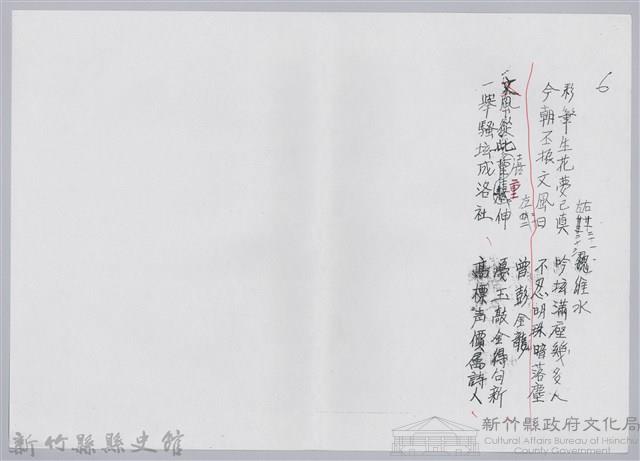 6
彩筆生花夢已真 吟壇滿座幾多人
今朝丕振文風日 不忍明珠暗落塵
曾彭金龍
文風從此喜重伸 戛玉敲金得句新
一舉騷壇成洛社 高標声價屬詩人
維水
新竹縣縣史館
新竹縣政府文化局
Cultural Affairs Bureau of Hsinchu
County Government